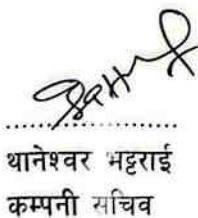 ....................
थानेश्वर भट्टराई
कम्पनी सचिव